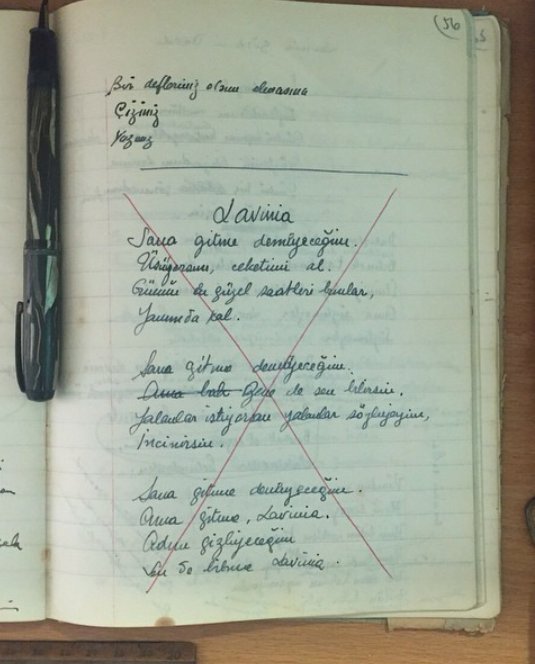 56
Bir defteriniz olsun elvanına
Çiziniz
Yazınız
Lavinia
Sana gitme demiyeceğim.
Üşüyorsun, ceketimi al.
Günün en güzel saatleri bunlar,
Yanımda kal.
Sana gitme demiyeceğim.
Ama bak Gene de sen bilirsin.
Yalanlar istiyorsan yalanlar söyliyeyim,
İncinirsin.
Sana gitme demiyeceğim.
Ama gitme, Lavinia.
Adını gizliyeceğim
Sen de bilme Lavinia.